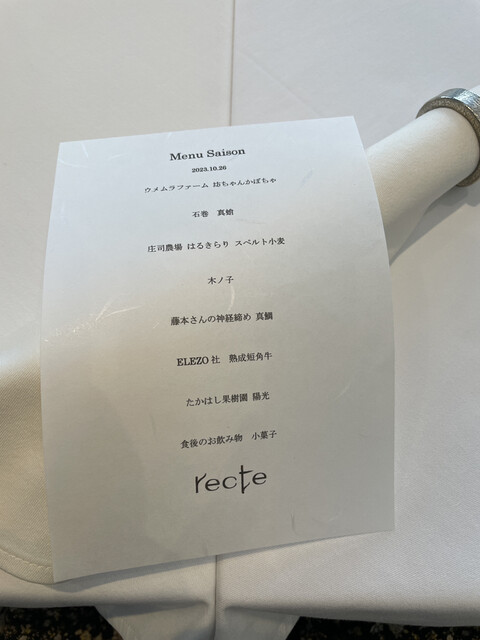 Menu Saison
2023.10.26
ウメムラファーム 坊ちゃんかぼちゃ
石巻 真鯒
庄司農場 はるきらり スペルト小麦
木ノ子
藤本さんの神経締め 真鯛
ELEZO社 熟成短角牛
たかはし果樹園 陽光
食後のお飲み物 小菓子
recte